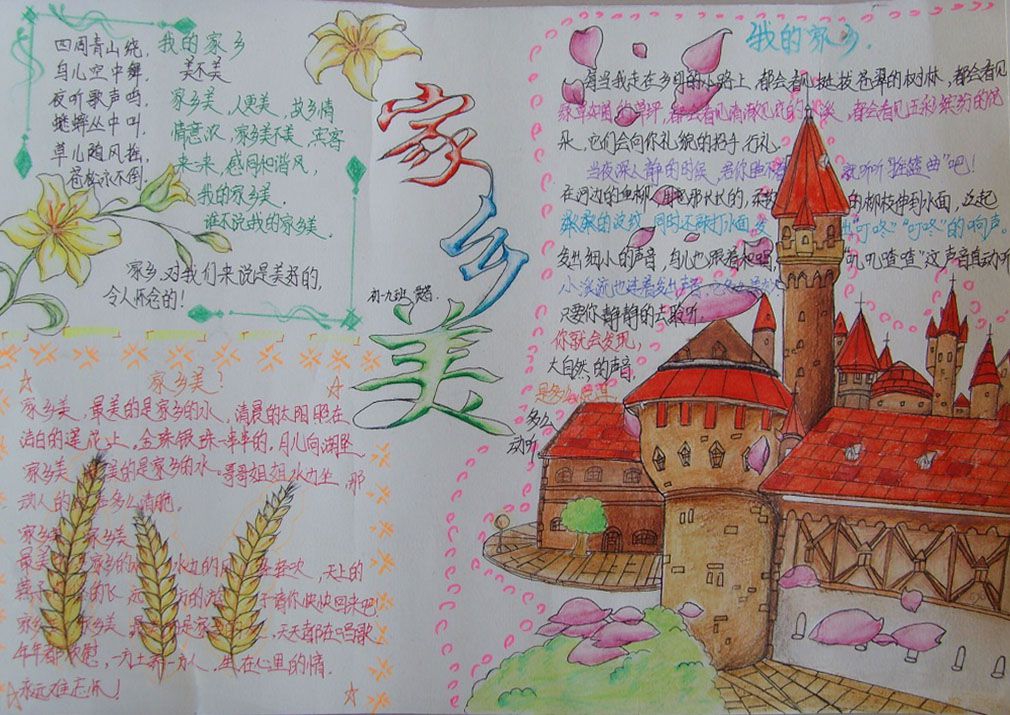 四周青山绕，
鸟儿空中舞，
夜听歌声鸣，
蟋蟀丛中叫，
草儿随风摇，
苍松永不倒。
我的家乡
美不美
家乡美，人更美，故乡情
情意浓，家乡美不美，宾客
来一来，感同和谐风，
我的家乡美．
谁不说我的家乡美．
家乡，对我们来说是美好的，
令人怀念的！
家乡美
初一九班
家乡美！
家乡美，最美的是家乡的水，清晨的太阳照在
洁白的莲花上，金珠银珠一串串的，月儿向湖坠
家乡美 美的是家乡的水。哥哥姐姐水边坐，那
动人的 多么清脆。
家乡美 家乡美
最美 家乡的 水边的 轻吹，天上的
燕子 的飞 远方的 子请你快快回来吧
家乡 乡美，最 是家 ，天天都在唱歌
年年都 ，一方土养一方人，生在心里的情．
永远难忘怀！
我的家乡．
每当我走在乡间的小路上，都会看见挺拔苍翠的树林，都会看见
绿草如茵的草坪，都会看见清澈见底的小溪，都会看见五彩缤纷的花
朵，它们会向你礼貌的招手，行礼。
当夜深人静的时候，若你睡不着 就听听“摇篮曲”吧！
在河边的垂柳 那长长的，柔软 的柳枝伸到水面，泛起
粼粼的波纹，同时还敲打水面，发出“叮咚”“叮咚”的响声。
发出细小的声音，鸟儿也跟着和唱， “叽叽喳喳”这声音真动听
小溪流也连着发出声音，
只要你静静的去聆听，
你就会发现，
大自然的声音，
是多么
多么
动听